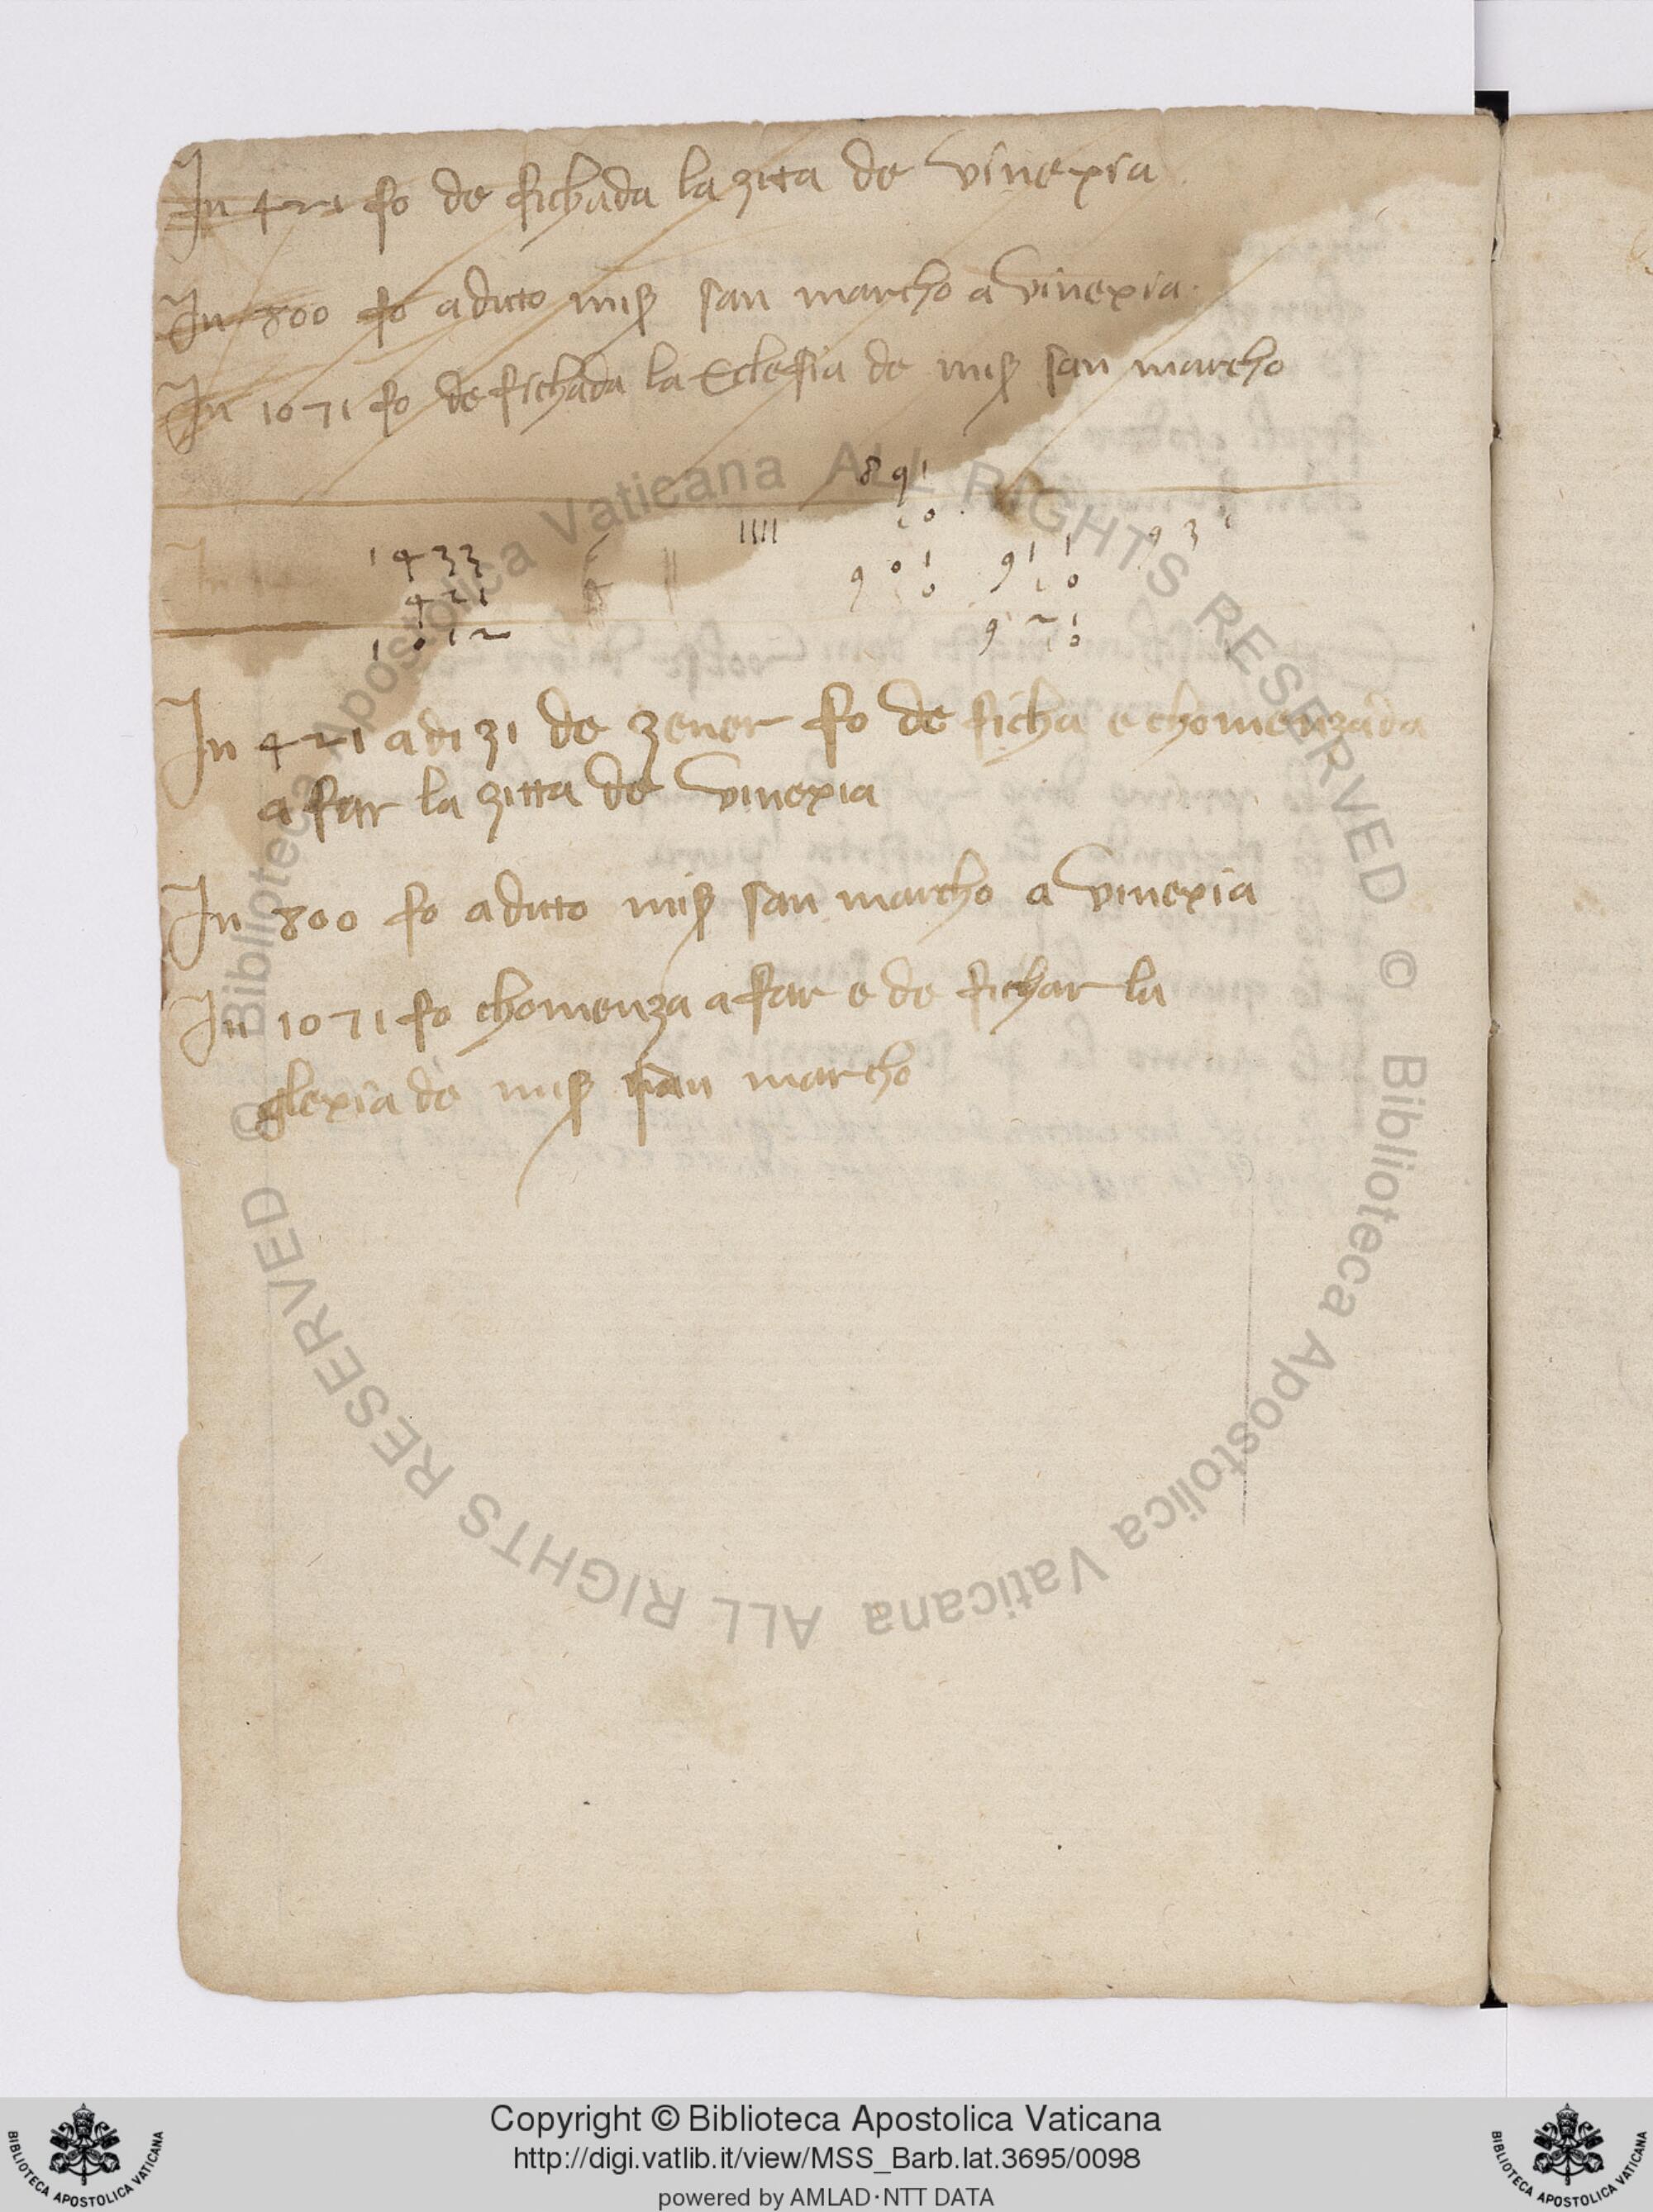 In 421 fo de fichada la zita de vinexia
In 800 fo aduto mis san marcho a vinexia
In 1071 fo de fichada la Eclesia de mis san marcho
891
10
1433
421
1012
1111
901
10
911
10
921
10
93
In 421 adi 31 de zener fo de ficha e chomenzada
a far la zitta de vinexia
In 800 fo aduto mis san marcho a vinexia
In 1071 fo chomenza a far e de fichar la
glexia de mis san marcho
© Biblioteca Apostolica Vaticana ALL RIGHTS RESERVED © Biblioteca Apostolica Vaticana ALL RIGHTS RESERVED
Copyright © Biblioteca Apostolica Vaticana
http://digi.vatlib.it/view/MSS_Barb.lat.3695/0098
powered by AMLAD·NTT DATA
BIBLIOTECA APOSTOLICA VATICANA
BIBLIOTECA APOSTOLICA VATICANA